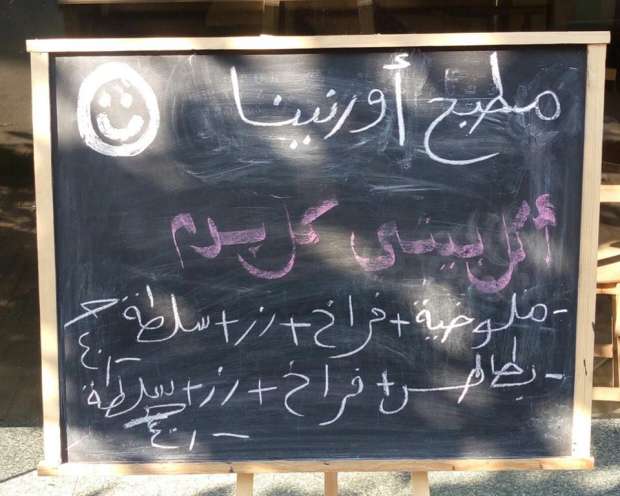 مطبخ أورنينا
أكل بيتي كل يوم
- ملوخية + فراخ + رز + سلطة
٤٠ ج
- بطاطس + فراخ + رز + سلطة
٤٠